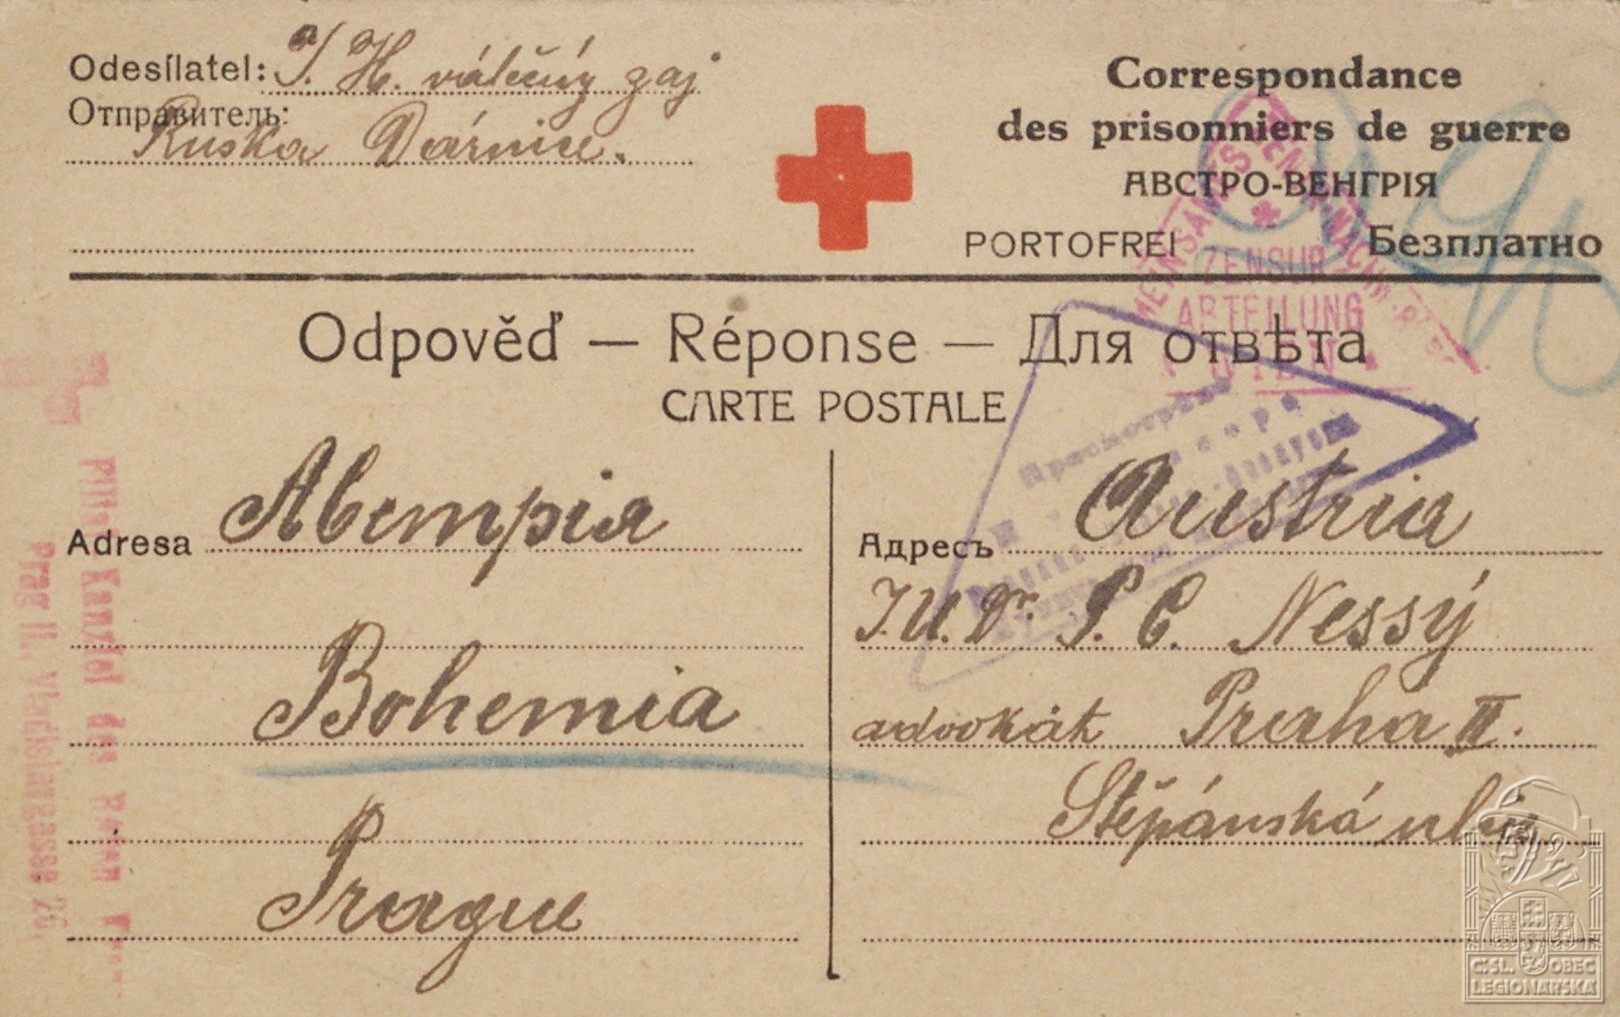 Odesílatel: J. H. válečný zaj
Отправитель:
Ruska Dárnice.
Correspondance
des prisonniers de guerre
АВСТРО-ВЕНГРІЯ
PORTOFREI Безплатно
ZENSUR
ABTEILUNG
WIEN
Odpověď — Réponse — Для отвѣта
CARTE POSTALE
Adresa Австрія
Bohemia
Prague
Адресъ Austria
J.U.Dr. P. C. Nessý
advokát Praha II.
Štěpánská ulice
Kanzlei des Roten
Prag II., Vladislavgasse 26.
ČSL. OBEC
LEGIONÁŘSKÁ